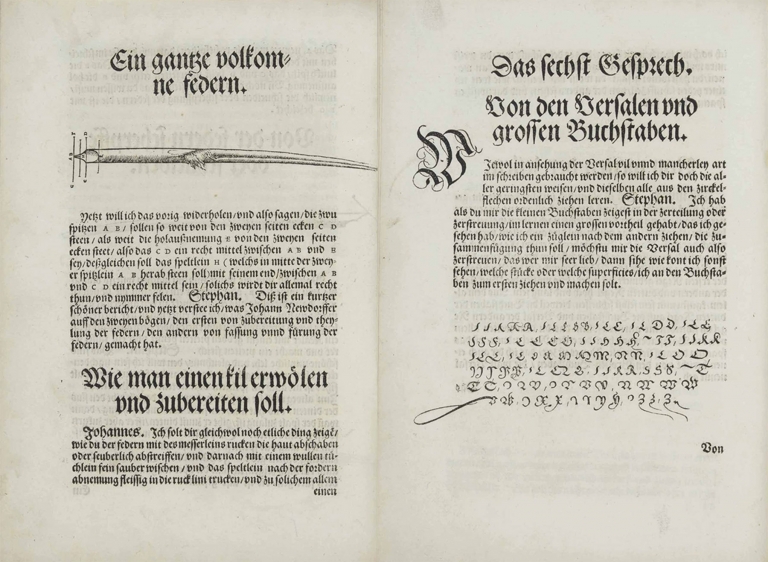 Ein gantze volkom⸗
ne federn.
Yetzt will ich das vorig widerholen/ vnd also sagen/ die zwu
spitzen A B/ sollen so weit von den zweyen seiten ecken C D
steen/ als weit die holaußnemung E von den zweyen seiten
ecken steet/ also das C D ein recht mittel zwischen A B vnd E
sey/ deßgleichen soll das speltlein H (welchs in mitte der zwey⸗
er spitzlein A B herab steen soll) mit seinem end/ zwischen A B
vnd C D ein recht mittel sein/ solichs wirdt dir allemal recht
thun/ vnd nymmer felen. Stephan. Diß ist ein kurtzer
schöner bericht/ vnd yetzt verstee ich/ was Johann Newdorffer
auff den zweyen bögen/ den ersten von zubereitung vnd they⸗
lung der federn/ den andern von fassung vnnd fürung der
federn/ gemacht hat.
Wie man einen kil erwölen
vnd zubereiten soll.
Johannes. Ich solt dir gleichwol noch etliche ding zeigẽ/
wie du der federn mit des messerleins rucken die haut abschaben
oder seuberlich abstreiffen/ vnd darnach mit einem wullen tü⸗
chlein fein sauber wischen/ vnd das speltlein nach der fordern
abnemung fleissig in die ruck lini trucken/ vnd zu solichem allem
einen
Das sechst Gesprech.
Von den Versalen vnd
grossen Buchstaben.
Wiewol in ansehung der Versal vil vnnd mancherley art
im schreiben gebraucht werden/ so will ich dir doch die al⸗
ler geringsten weisen/ vnd dieselben alle aus den zirckel⸗
flechen ordenlich ziehen leren. Stephan. Ich hab
als du mir die kleinen Buchstaben zeigest in der zerteilung oder
zerstreuung/ im lernen einen grossen vortheil gehabt/ das ich ge⸗
sehen hab/ wie ich ein züglein nach dem andern ziehen/ die zu⸗
samenfügung thun soll/ möchstu mir die Versal auch also
zerstreuen/ das wer mir seer lieb/ dann sihe wie kont ich sonst
sehen/ welche stücke oder welche superficies/ ich an den Buchsta⸗
ben zum ersten ziehen vnd machen solt.
Von